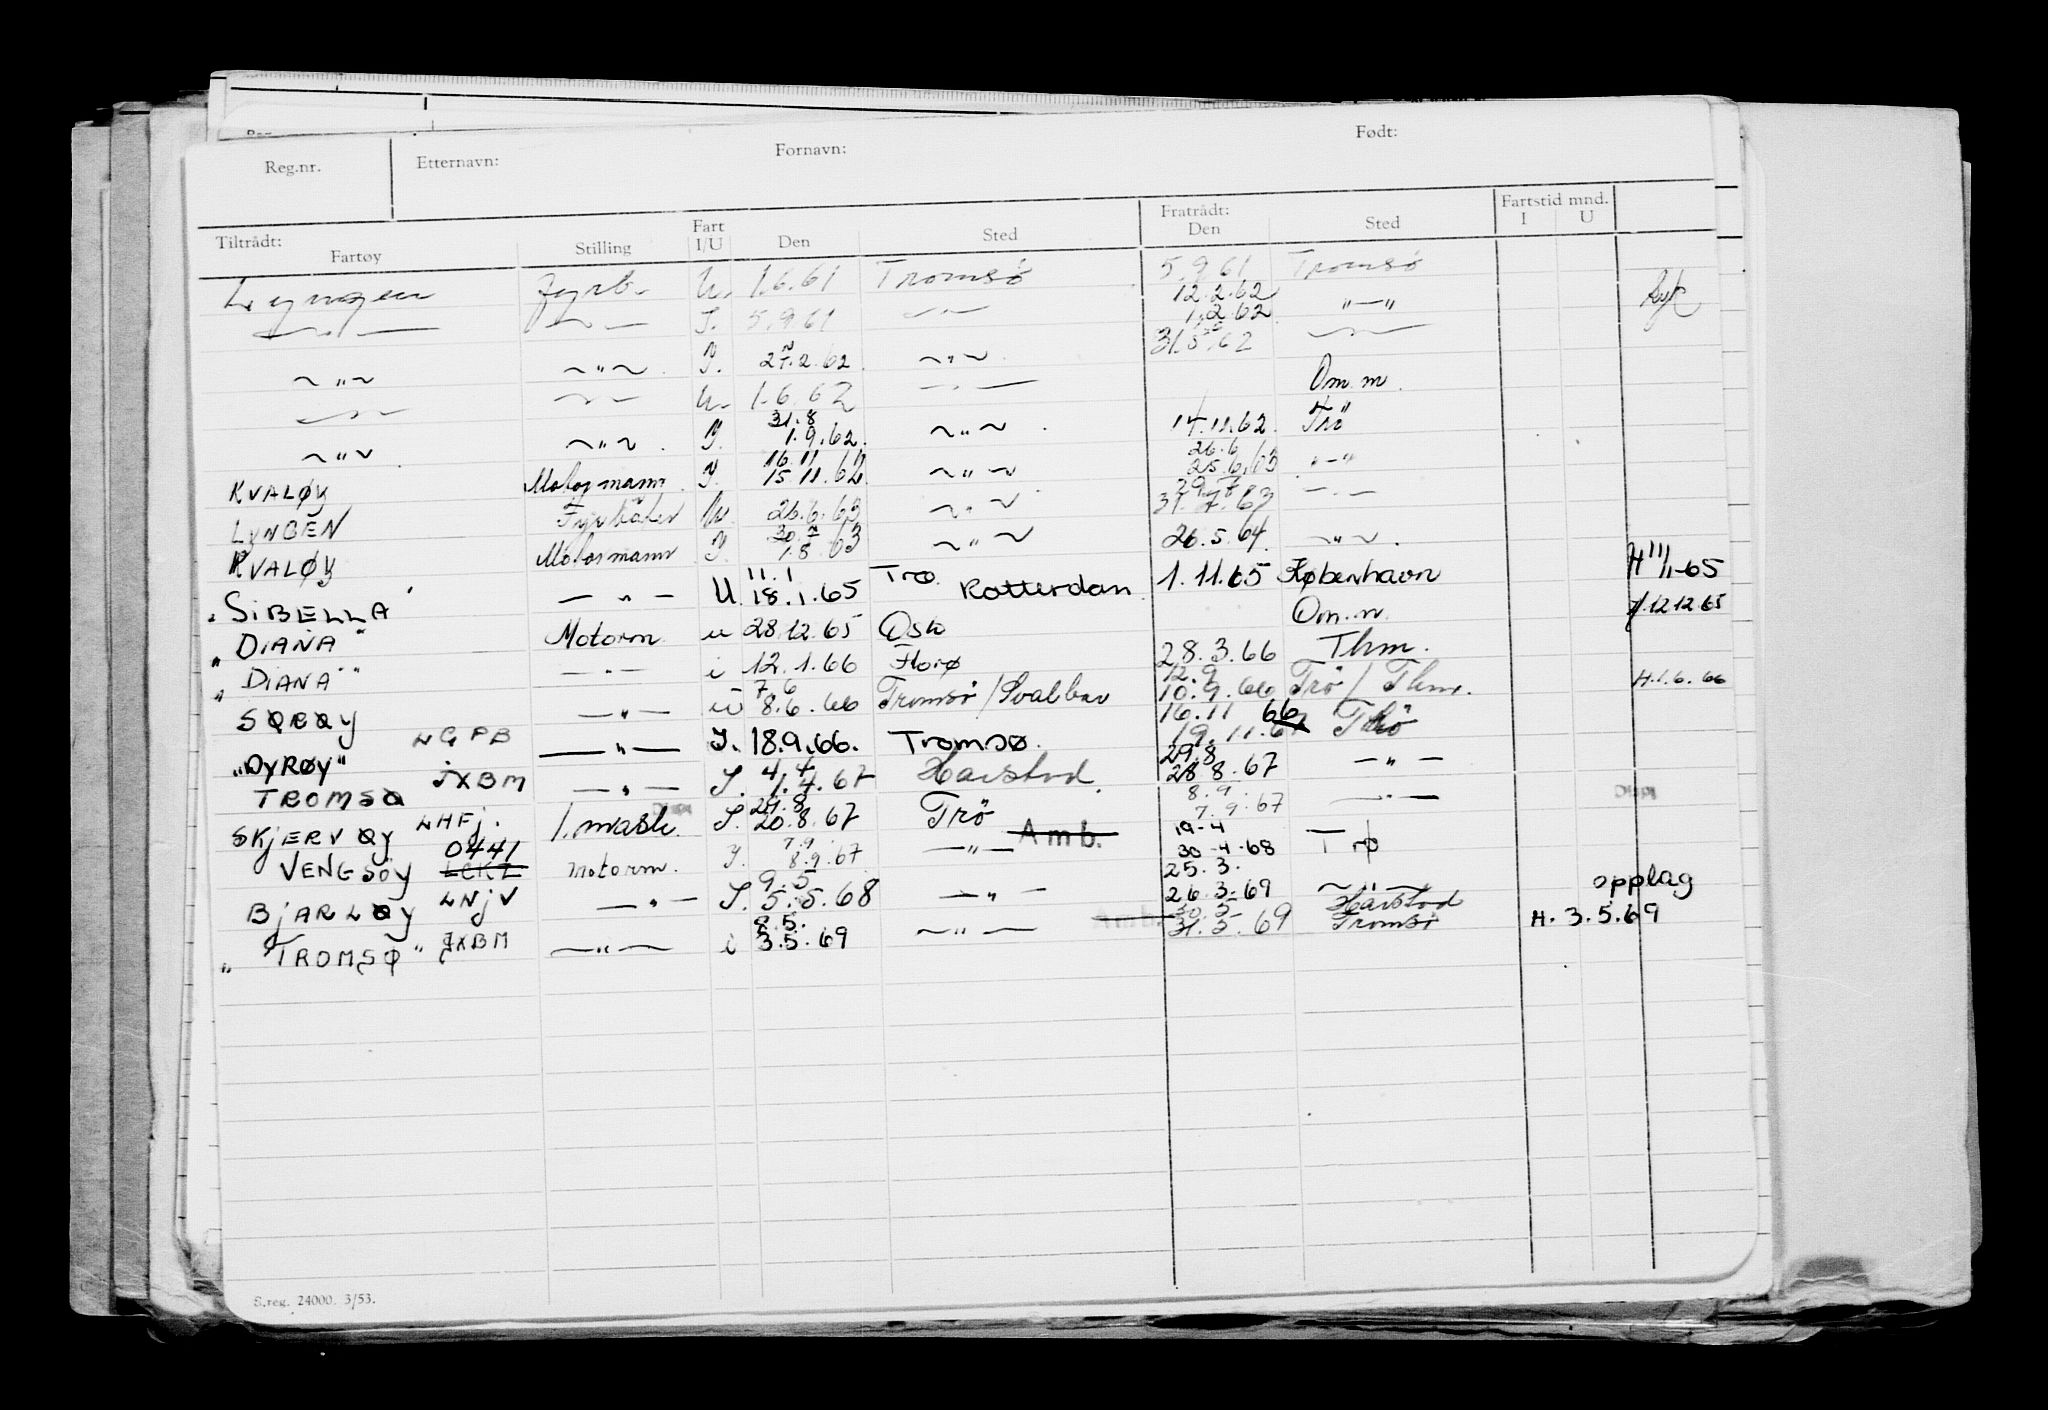 Reg.nr. Etternavn: Fornavn: Født:
Tiltrådt: Fratrådt: Fartstid mnd.
Fartøy Stilling Fart I/U Den Sted Den Sted I U
Lyngen Fyrb. U. 1.6.61 Tromsø 5.9.61 Tromsø
—〃— —〃— I. 5.9.61 —〃— 12.2.62 1.2.62 〃—〃
〃 〃 I. 2.62 〃 31.5.62 —〃—
—〃— —〃— U. 1.6.62 —〃— Om.m.
〃 〃 I. 31.8 1.9.62. 〃 14.11.62. Trö
KVALØY Motormann I. 16.11 15.11.62 〃 26.6 25.6.63 〃—〃
LYNGEN Fyrbøter U. 26.6.63 〃 29.7 31.7.63 —〃—
KVALØY Motormann I. 30.7 1.8.63 〃 26.5.64. 〃
"SIBELLA" —〃— U 11.1 18.1.65 Trø. Rotterdam 1.11.65 København H 11/11-65
"DIANA" Motorm. u 28.12.65 Oslo Om.m. H.12.12.65
"DIANA" —〃— i 12.1.66 Florø 28.3.66 Thm.
SØRØY —〃— iu 7.6 8.6.66 Tromsø/Svalbar 12.9 10.9.66 Trö/Thm. H.1.6.66
"DYRØY" LGPB —〃— I. 18.9.66. Tromsø. 16.11 66 19.11.6 Trö
TROMSØ JXBM —〃— I. 4.4 1.4.67 Harstad 29.8 28.8.67 —〃—
SKJERVØY LHFJ. 1. mask Disp I. 29.8 20.8.67 Trö 8.9. 7.9.67 —〃— Disp
VENGSÖY 0441 motorm. I. 7.9 8.9.67 —〃— Amb. 19-4 30-4-68 Trø
BJARLØY LNJV —〃— I. 9.5 5.5.68 —〃— 25.3. 26.3.69 —〃— opplag
"TROMSØ" JXBM —〃— i 8.5. 3.5.69 —〃— Amb. 30.5 31.5.69 Harstad Tromsø H. 3.5.69
S.reg. 24000. 3/53.